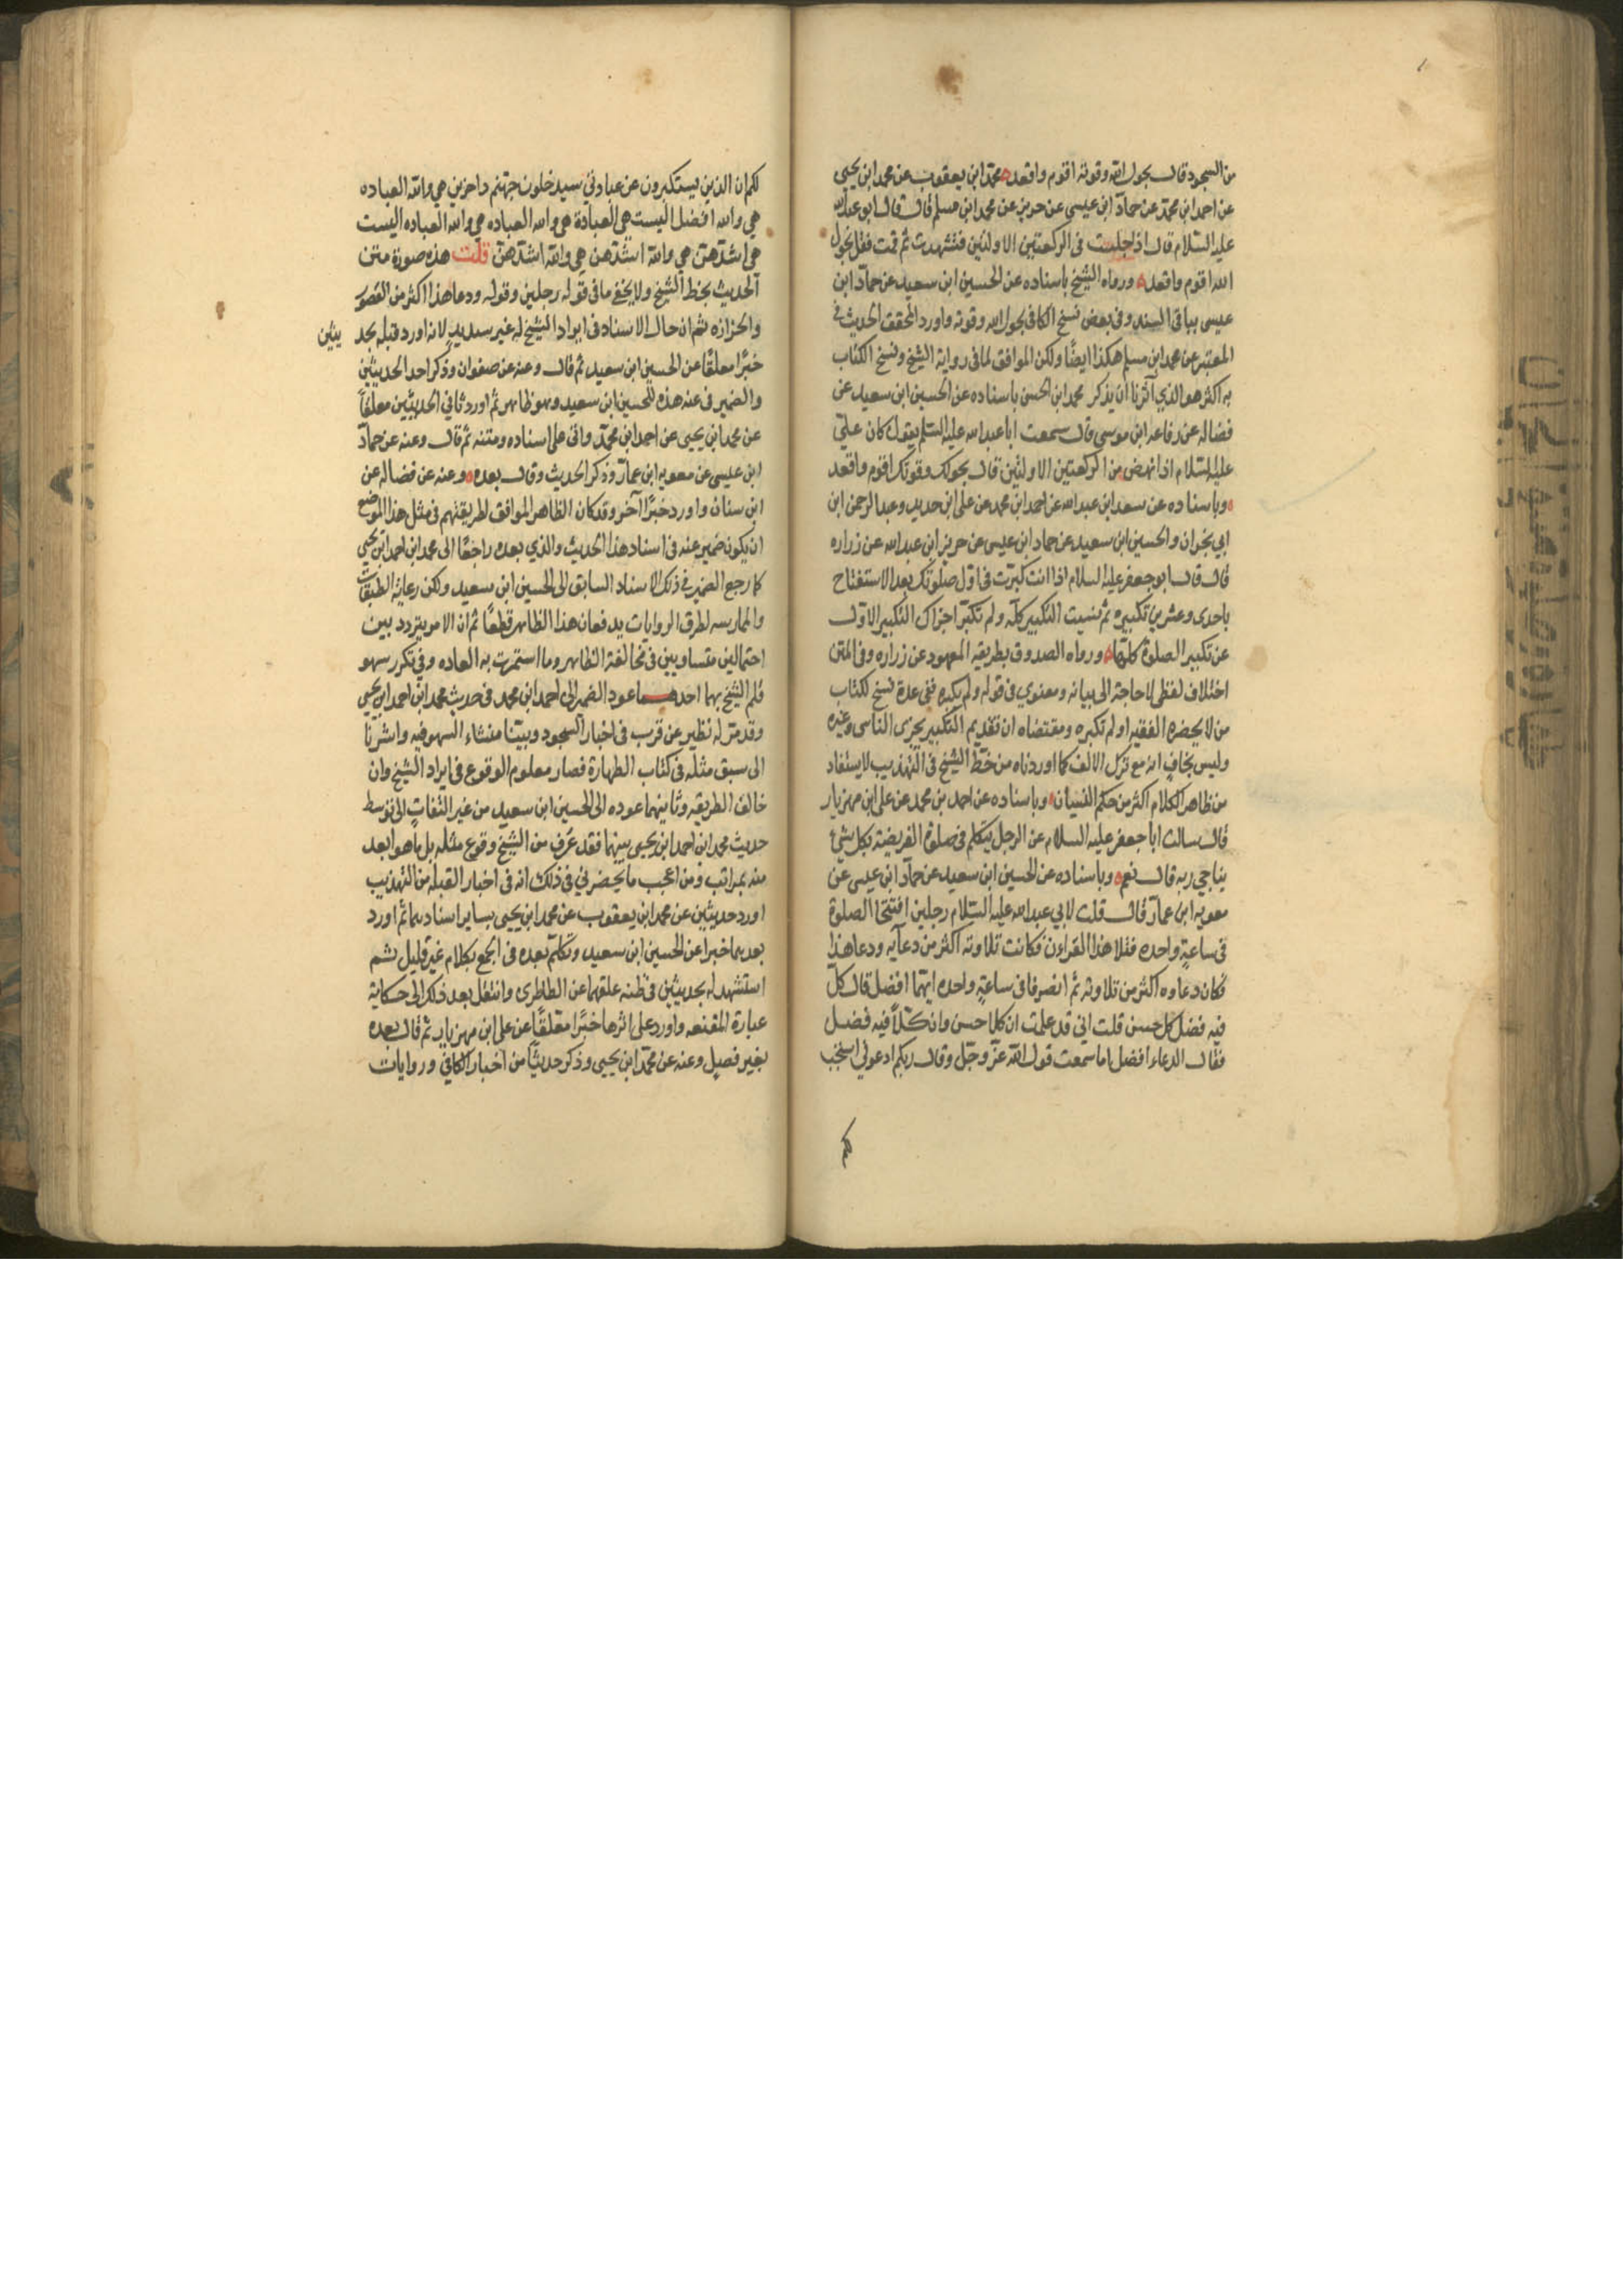 من السجود قال بحول الله وقوته اقوم واقعد محمد ابن يعقوب عن محمد ابن يحيى
عن احمد ابن محمد عن حماد ابن عيسى عن حريز عن محمد ابن مسلم قال قال ابو عبد الله
عليه السلام قال اذا جلست في الركعتين الاولتين فتشهدت ثم قمت فقل بحول
الله اقوم واقعد ورواه الشيخ باسناده عن الحسين ابن سعيد عن حماد ابن
عيسى بباقي السند وفي بعض نسخ الكافي بحول الله وقوته واورد المحقق الحديث في
المعتبر عن محمد ابن مسلم هكذا ايضًا ولكن الموافق لما في رواية الشيخ ونسخ الكتاب
به اكثر هو الذي آثرنا ان يذكر محمد ابن الحسن باسناده عن الحسين ابن سعيد عن
فضاله عن رفاعه ابن موسى قال سمعت ابا عبد الله عليه السلم يقول كان علي
عليه السلام اذا نهض من الركعتين الاولتين قال بحولك وقوتك اقوم واقعد
وباسناده عن سعد ابن عبد الله عن احمد ابن محمد عن علي ابن حديد وعبد الرحمن ابن
ابي نجران والحسين ابن سعيد عن حماد ابن عيسى عن حريز ابن عبد الله عن زراره
قال قال ابو جعفر عليه السلام اذا انت كبرت في اول صلوتك بعد الاستفتاح
باحدى وعشرين تكبيره ثم نسيت التكبير كله ولم تكبر اجزاك التكبير الاول
عن تكبير الصلوة كلها ورواه الصدوق بطريقه المعهود عن زراره وفي المتن
اختلاف لفظي لا حاجة الى بيانه ومعنوي في قوله ولم يكبره ففي عدة نسخ لكتاب
من لا يحضره الفقيه او لم تكبره ومقتضاه ان تقديم التكبير يجزى الناسى وغيره
وليس بخاف انه مع ترك الالف كما اوردناه من خط الشيخ في التهذيب لا يستفاد
من ظاهر الكلام اكثر من حكم النسيان وباسناده عن احمد بن محمد عن علي ابن مهزيار
قال سالت ابا جعفر عليه السلام عن الرجل يتكلم في صلوة الفريضة بكل شئ
يناجي ربه قال نعم وباسناده عن الحسين ابن سعيد عن حماد ابن عيسى عن
معويه ابن عمار قال قلت لابي عبد الله عليه السلام رجلين افتتحا الصلوة
في ساعةٍ واحده فتلا هذا القراءن فكانت تلاوته اكثر من دعآيه ودعا هذا
فكان دعاوه اكثر من تلاوته ثم انصرفا في ساعةٍ واحده ايهما افضل قال كل
فيه فضل كل حسن قلت اني قد علمت ان كلا حسن وان كلاً فيه فضل
فقال الدعاء افضل اما سمعت قول الله عز وجل وقال ربكم ادعوني استجب
لكم
لكم ان الذين يستكبرون عن عبادتي سيدخلون جهنم داخرين هي والله العباده
هي والله افضل اليست هي العبادة هي والله العباده هي والله العباده اليست
هي اشدهن هي والله اشدهن هي والله اشدهن قلت هذه صورة متن
الحديث بخط الشيخ ولا يخفي ما في قوله رجلين وقوله ودعا هذا اكثر من القصور
والحزازه ثم ان حال الاسناد في ايراد الشيخ له غير سديد لانه اورد قبله بحد يثين
خبرًا معلقًا عن الحسين ابن سعيد ثم قال وعنه عن صفوان وذكر احد الحديثين
والضمير في عنه هذه للحسين ابن سعيد وهو ظاهر ثم اورد ثاني الحديثين معلقاً
عن محمد ابن يحيى عن احمد ابن محمد واتى على اسناده ومتنه ثم قال وعنه عن حماد
ابن عيسى عن معويه ابن عمار وذكر الحديث وقال بعده وعنه عن فضاله عن
ابن سنان واورد خبرًا آخر وقد كان الظاهر الموافق لطريقتهم في مثل هذا الموضع
ان يكون ضمير عنه في اسناد هذا الحديث والذي بعده راجعًا الى محمد ابن احمد ابن يحيى
كما رجع الضمير في ذلك الاسناد السابق الى الحسين ابن سعيد ولكن رعاية الطبقات
والممارسه لطرق الروايات يدفعان هذا الظاهر قطعًا ثم ان الامر يتردد بين
احتمالين متساويين في مخالفة الظاهر وما استمرت به العاده وفي تكرر سهو
قلم الشيخ بهما احدهما عود الضمير الى احمد ابن محمد في حديث محمد ابن احمد ابن يحيى
وقد مر له نظير عن قرب في اخبار السجود وبينا منشاء السهو فيه واشرنا
الى سبق مثله في كتاب الطهارة فصار معلوم الوقوع في ايراد الشيخ وان
خالف الطريقه وثانيهما عوده الى الحسين ابن سعيد من غير التفات الى توسط
حديث محمد ابن احمد ابن يحيى بينهما فقد عرف من الشيخ وقوع مثله بل ما هو ابعد
منه بمراتب ومن اعجب ما يحضرني في ذلك انه في اخبار القبله من التهذيب
اورد حديثين عن محمد ابن يعقوب عن محمد ابن يحيى بساير اسنادهما ثم اورد
بعدهما خبرا عن الحسين ابن سعيد وتكلم بعده في الجمع بكلام غير قليل ثم
استشهد له بحديثين في ظنه علقهما عن الطاطرى وانتقل بعد ذلك الى حكاية
عبارة المقنعه واورد على اثرها خبرًا معلقًا عن علي ابن مهزيار ثم قال بعده
بغير فصل وعنه عن محمد ابن يحيى وذكر حديثًا من اخبار الكافي وروايات